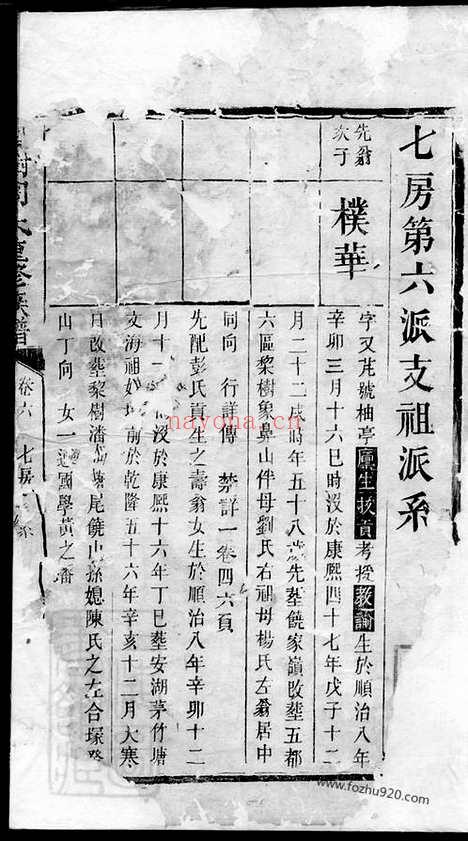 七房第六派支祖派系
先翁
次子
樸華
字又芃號柚亭廩生拔貢考授教諭生於順治八年
辛卯三月十六巳時沒於康熙四十七年戊子十二
月二十二戌時年五十八歲先塟饒家嶺改塟五都
六區黎樹象鼻山伴母劉氏右祖母楊氏左翁居中
同向 行詳傳 禁詳一卷四六頁
先配彭氏貢生之壽翁女生於順治八年辛卯十二
月十二 沒於康熙十六年丁巳塟安湖茅竹塘
文海祖妣 前於乾隆五十六年辛亥十二月大寒
日改塟黎樹潘 尾饒山孫媳陳氏之左合塚
山丁向 女一適國學黃之
重修族譜
卷六 七房 系
nayona.cn
www.fozhu920.com